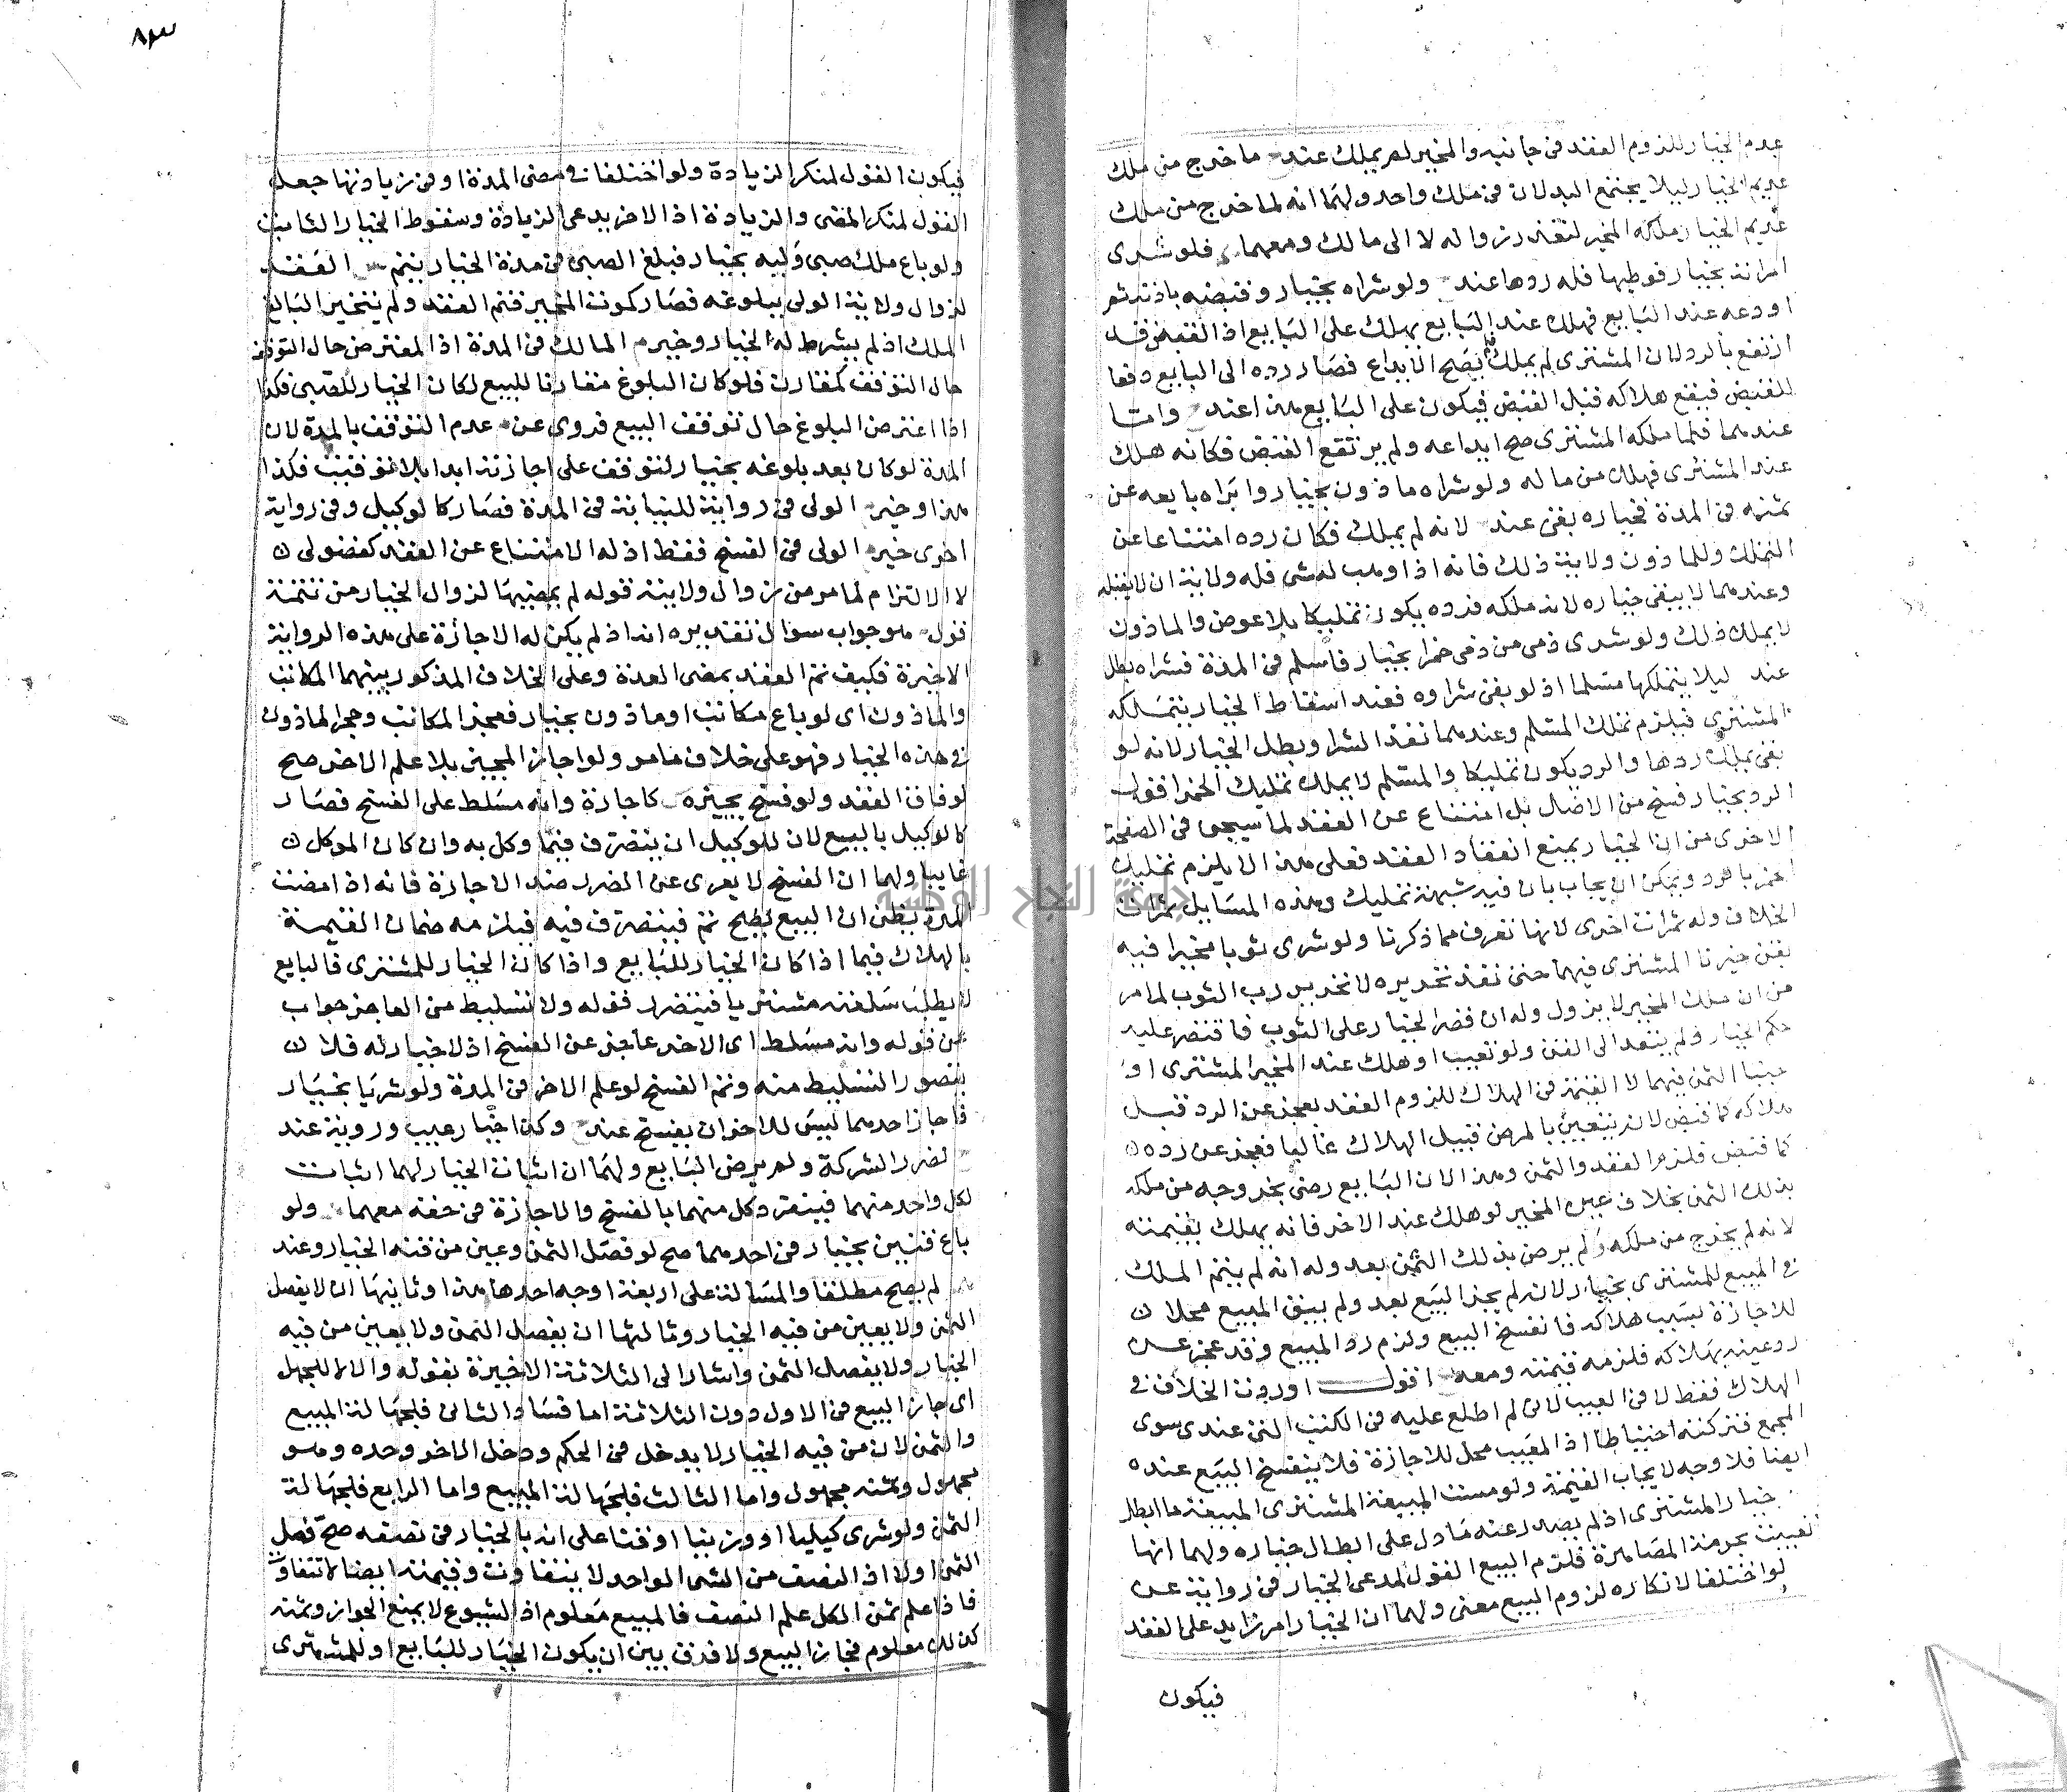 عدم الخيار للزوم العقد في جانبه والمخير لم يملك عند ما خرج من ملك
عديم الخيار ليلا يجتمع البدلان في ملك واحد ولهما انه لما خرج من ملك
عديم الخيار يملكه المخير لتعذر زواله لا الى مالك ومعهما فلو شرى
امرانه بخيار فوطيها فله ردها عند ولو شراه بخيار وقبضه باذنه ثم
اودعه عند البايع فهلك عند البايع يهلك على البايع اذ القبض قد
ارتفع بالرد لان المشترى لم يملك فلم يصح الايداع فصار رده الى البايع دفعا
للقبض فيقع هلاكه قبل القبض فيكون على البايع هذا عند واما
عندهما فلما ملكه المشترى صح ايداعه ولم يرتفع القبض فكانه هلك
عند المشترى فهلك من ماله ولو شراه ماذون بخيار وابراه بايعه عن
ثمنه في المدة فخياره بقى عند لانه لم يملك فكان رده امتناعا عن
التملك وللماذون ولاية ذلك فانه اذا وهب له شى فله ولاية ان لا يقبله
وعندهما لا يبقى خياره لانه ملكه فرده يكون تمليكا بلا عوض والماذون
لا يملك ذلك ولو شرى ذمى من ذمى خمرا بخيار فاسلم في المدة فشراه بطل
عند ليلا يتملكها مسلما اذ لو بقى شراوه فعند اسقاط الخيار يتملكه
المشترى فيلزم تملك المسلم وعندهما نفذ الشرا وبطل الخيار لانه لو
بقى يملك ردها والرد يكون تمليكا والمسلم لا يملك تمليك الخمر اقول
الرد بخيار فسخ من الاصل بل امتناع عن العقد لما سيجى في الصفحة
الاخرى من ان الخيار يمنع انعقاد العقد فعلى هذا لا يلزم تمليك
الخمر بالرد ويمكن ان يجاب بان فيه شبهة تمليك وهذه المسايل ثمرات
الخلاف وله ثمرات اخرى لانها تعرف مما ذكرنا ولو شرى ثوبا مخيرا فيه
بقن خيرنا المشترى فيهما حتى نفذ تحريره لا تحرير رب الثوب لما مر
من ان ملك المخير لا يزول وله ان قصر الخيار على الثوب فاقتصر عليه
حكم الخيار ولم يتعد الى القن ولو تعيب او هلك عند المخير المشترى او
عينا الثمن فيهما لا القيمة في الهلاك للزوم العقد بعجز عن الرد قبل
هلاكه كما قبض لانه يتعين بالمرض قبيل الهلاك غالبا فعجز عن رده
كما قبض فلزم العقد والثمن وهذا لان البايع رضى بخروجه من ملكه
بذلك الثمن بخلاف غيره المخير لو هلك عند الاخر فانه يهلك بقيمته
لانه لم يخرج من ملكه ولم يرض بذلك الثمن بعد وله انه لم يتم الملك
في المبيع للمشترى بخيار لانه لم يجز البيع بعد ولم يبق المبيع محلا
للاجازة بسبب هلاكه فانفسخ البيع ولزم رد المبيع وقد عجز عن
رد عينه بهلاكه فلزمه قيمته ومعه اقول اوردت الخلاف في
الهلاك فقط لا في العيب لانى لم اطلع عليه في الكتب التى عندى سوى
المجمع فتركته احتياطا اذ المعيب محل للاجازة فلا ينفسخ البيع عنده
ايضا فلا وجه لايجاب القيمة ولو مست المبيعة المشترى المبيعة ما ابطل
خيار المشترى اذ لم يصدر عنه ما دل على ابطال خياره ولهما انها
تعيبت بحرمة المصاهرة فلزم البيع القول لمدعى الخيار في رواية عن
لو اختلفا لانكاره لزوم البيع معنى ولهما ان الخيار امر زايد على العقد
فيكون
٨٣
فيكون القول لمنكر الزيادة ولو اختلفا في مضى المدة او في زيادتها جعل
القول لمنكر المضى والزيادة اذ الاخر يدعى الزيادة وسقوط الخيار الثابت
ولو باع ملك صبى وليه بخيار فبلغ الصبى في مدة الخيار يتم العقد
لزوال ولاية الولى ببلوغه فصار كموت المخير فتم العقد ولم يتخير البالغ
الملك اذ لم يشرط له الخيار وخيره المالك في المدة اذ المعترض حال التوقف
حال التوقف كمقارن فلو كان البلوغ مقارنا للبيع لكان الخيار للصبى فكذا
اذا اعترض البلوغ حال توقف البيع فروى عن عدم التوقف بالمدة لان
المدة لو كان بعد بلوغه بخيار لتوقف على اجازته ابدا بلا توقيت فكذا
هذا وخير الولى في رواية للنيابة في المدة فصار كالوكيل وفى رواية
اخرى خير الولى في الفسخ فقط اذ له الامتناع عن العقد كفضولى
لا الالتزام لما مر من زوال ولايته قوله لم بمضيها لزوال الخيار من تتمة
قول هو جواب سوال تقديره انه اذ لم يكن له الاجازة على هذه الرواية
الاخيرة فكيف تم العقد بمضى المدة وعلى الخلاف المذكور بينهما المكاتب
والماذون اى لو باع مكاتب او ماذون بخيار فعجز المكاتب وحجر الماذون
في هذه الخيار فهو على خلاف ما مر ولو اجاز المجيز بلا علم الاخر صح
لوفاق العقد ولو فسخ يجيزه كاجازة وانه مسلط على الفسخ فصار
كالوكيل بالبيع لان للوكيل ان يتصرف فيما وكل به وان كان الموكل
غايبا ولهما ان الفسخ لا يعرى عن الضرر ضد الاجازة فانه اذا مضت
المدة يظن ان البيع تم فيتصرف فيه فيلزمه ضمان القيمة
بالهلاك فيما اذا كان الخيار للبايع واذا كان الخيار للمشترى فالبايع
لا يطلب سلعته مشتريا فيتضرر فقوله ولا تسليط من العاجز جواب
عن قوله وانه مسلط اى الاخر عاجز عن الفسخ اذ لا خيار له فلا
يتصور التسليط منه وتم الفسخ لو علم الاخر في المدة ولو شريا بخيار
فاجاز احدهما ليس للاخر ان يفسخ عند وكذا خيار عيب وروية عند
لضرر الشركة ولم يرض البايع ولهما ان اثبات الخيار لهما اثبات
لكل واحد منهما فيتفرد كل منهما بالفسخ والاجازة في حقه معهما ولو
باع قنين بخيار في احدهما صح لو فصل الثمن وعين من قنه الخيار وعند
لم يصح مطلقا والمسالة على اربعة اوجه احدها هذا وثانيها ان لا يفصل
الثمن ولا يعين من فيه الخيار وثالثها ان يفصل الثمن ولا يعين من فيه
الخيار ولا يفصل الثمن واشار الى الثلاثة الاخيرة بقوله والا لا للجهل
اى جاز البيع في الاول دون الثلاثة اما فساد الثانى فلجهالة المبيع
والثمن لان من فيه الخيار لا يدخل في الحكم ودخل الاخر وحده وهو
مجهول وثمنه مجهول واما الثالث فلجهالة المبيع واما الرابع فلجهالة
الثمن ولو شرى كيليا او وزنيا او قنا على انه بالخيار في نصفه صح فصل
الثمن اولا اذ النصف من الشى الواحد لا يتفاوت وقيمته ايضا لا تتفاوت
فاذا علم ثمن الكل علم النصف فالمبيع معلوم اذ الشيوع لا يمنع الجواز وثمنه
كذلك معلوم فجاز البيع ولا فرق بين ان يكون الخيار للبايع او للمشترى
جامعة النجاح الوطنية